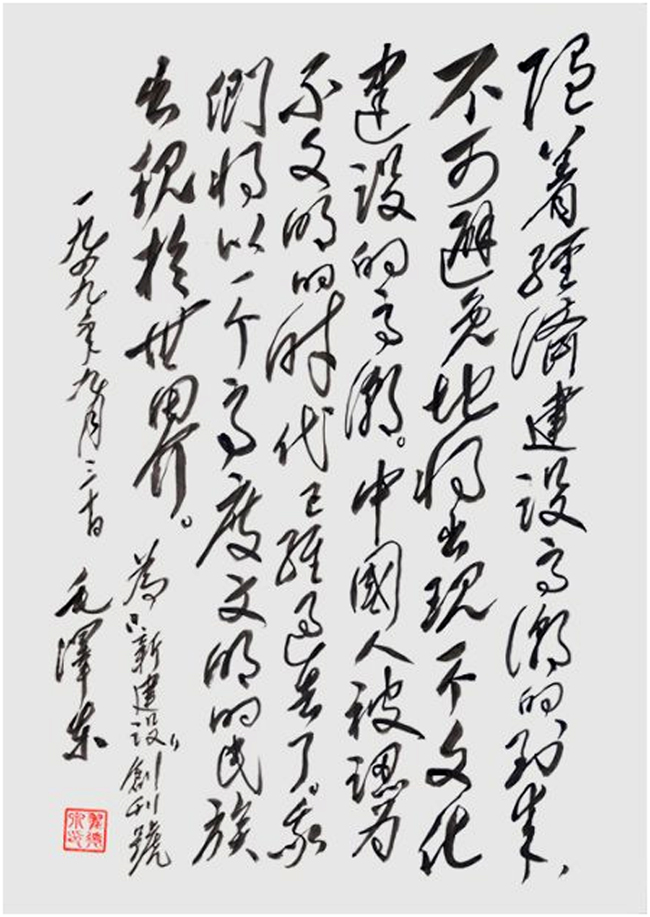 随着經濟建設高潮的到来，
不可避免地将出現一个文化
建設的高潮。中國人被認为
不文明的時代已經過去了。我
們将以一个高度文明的民族
出現於世界。
為“新建設”創刊號
一九四九年九月二十日
毛澤东